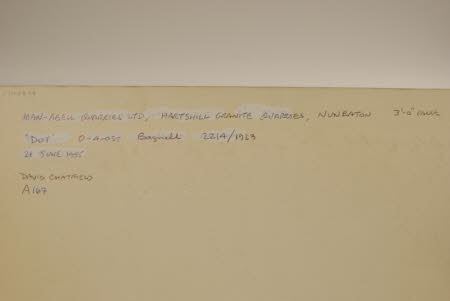 MAN-ABELL QUARRIES LTD, HARTSHILL GRANITE QUARRIES, NUNEATON 3'-0" GAUGE
"DOT" 0-4-0ST Bagnall 2214/1923
21 JUNE 1955
DAVID CHATFIELD
A167